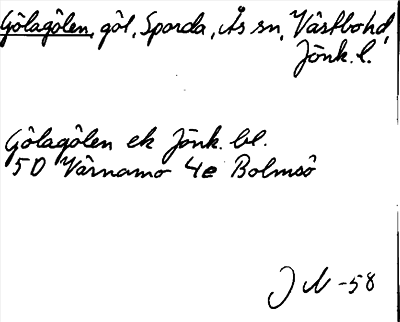 Gölagölen, göl, Sporda, Ås sn, Västbohd,
Jönk. l.
Gölagölen ek Jönk. bl.
5D Värnamo 4e Bolmsö
J N -58